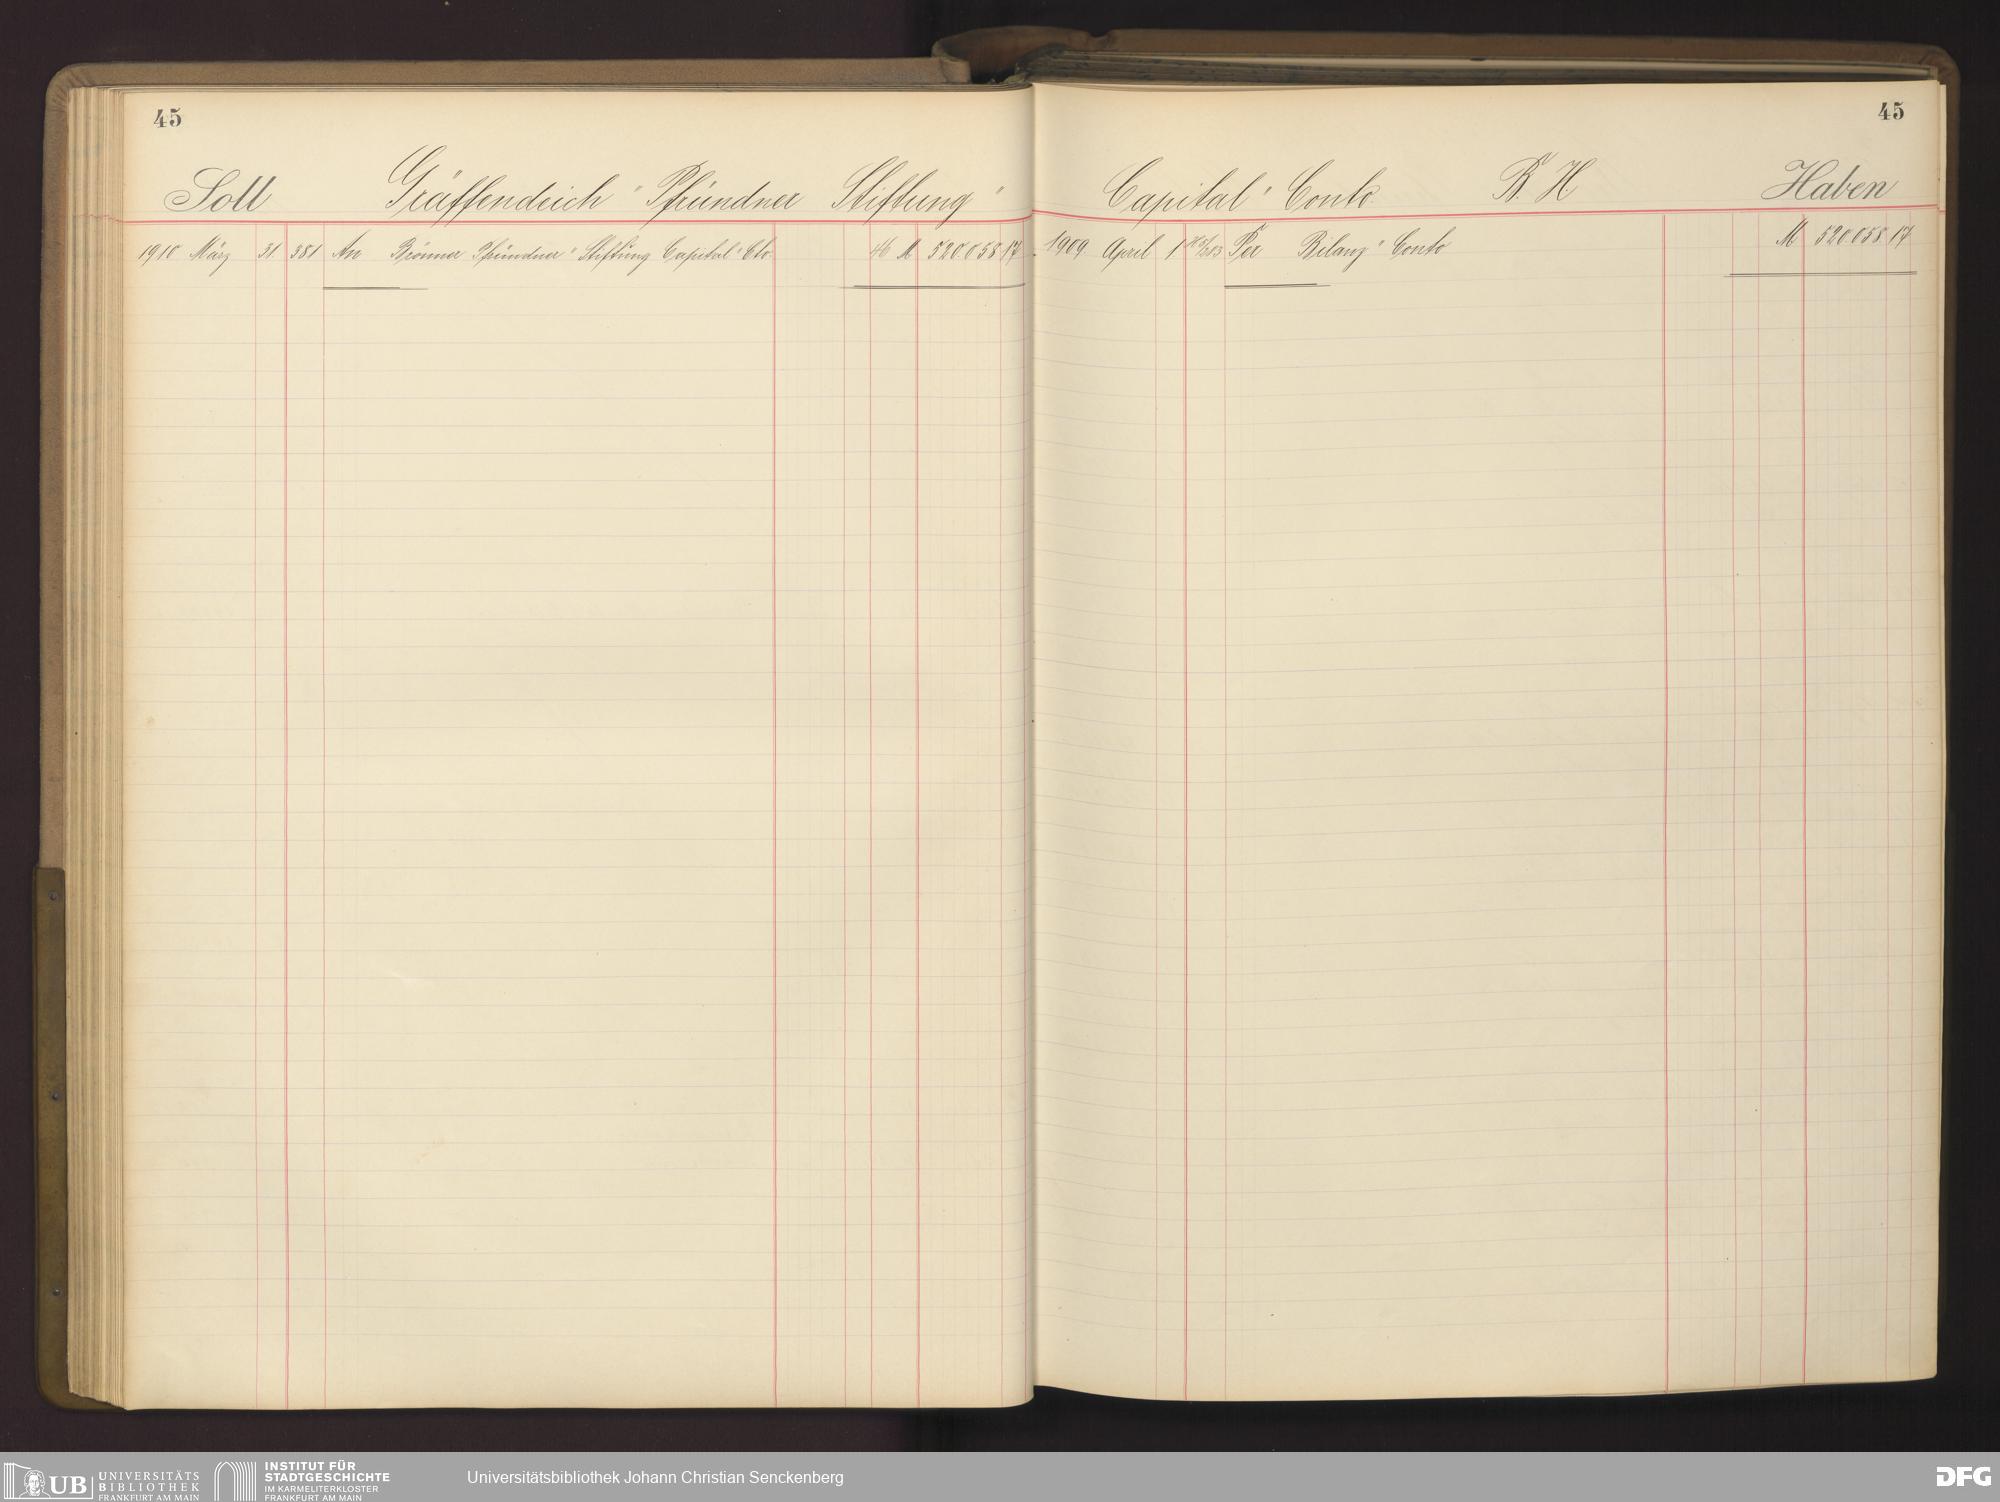 45
Soll Gräffendeich " Pfründner Stiftung "
1910 März 31. 381 An Brönner Pfründner " Stiftung Capital " Cto. 46 M 520.058 17
45
Capital " Conto B. H Haben
1909 April 1 Per Bilanz " Conto M 520.058 17
UB UNIVERSITÄTS
BIBLIOTHEK
FRANKFURT AM MAIN
INSTITUT FÜR
STADTGESCHICHTE
IM KARMELITERKLOSTER
FRANKFURT AM MAIN
Universitätsbibliothek Johann Christian Senckenberg
DFG